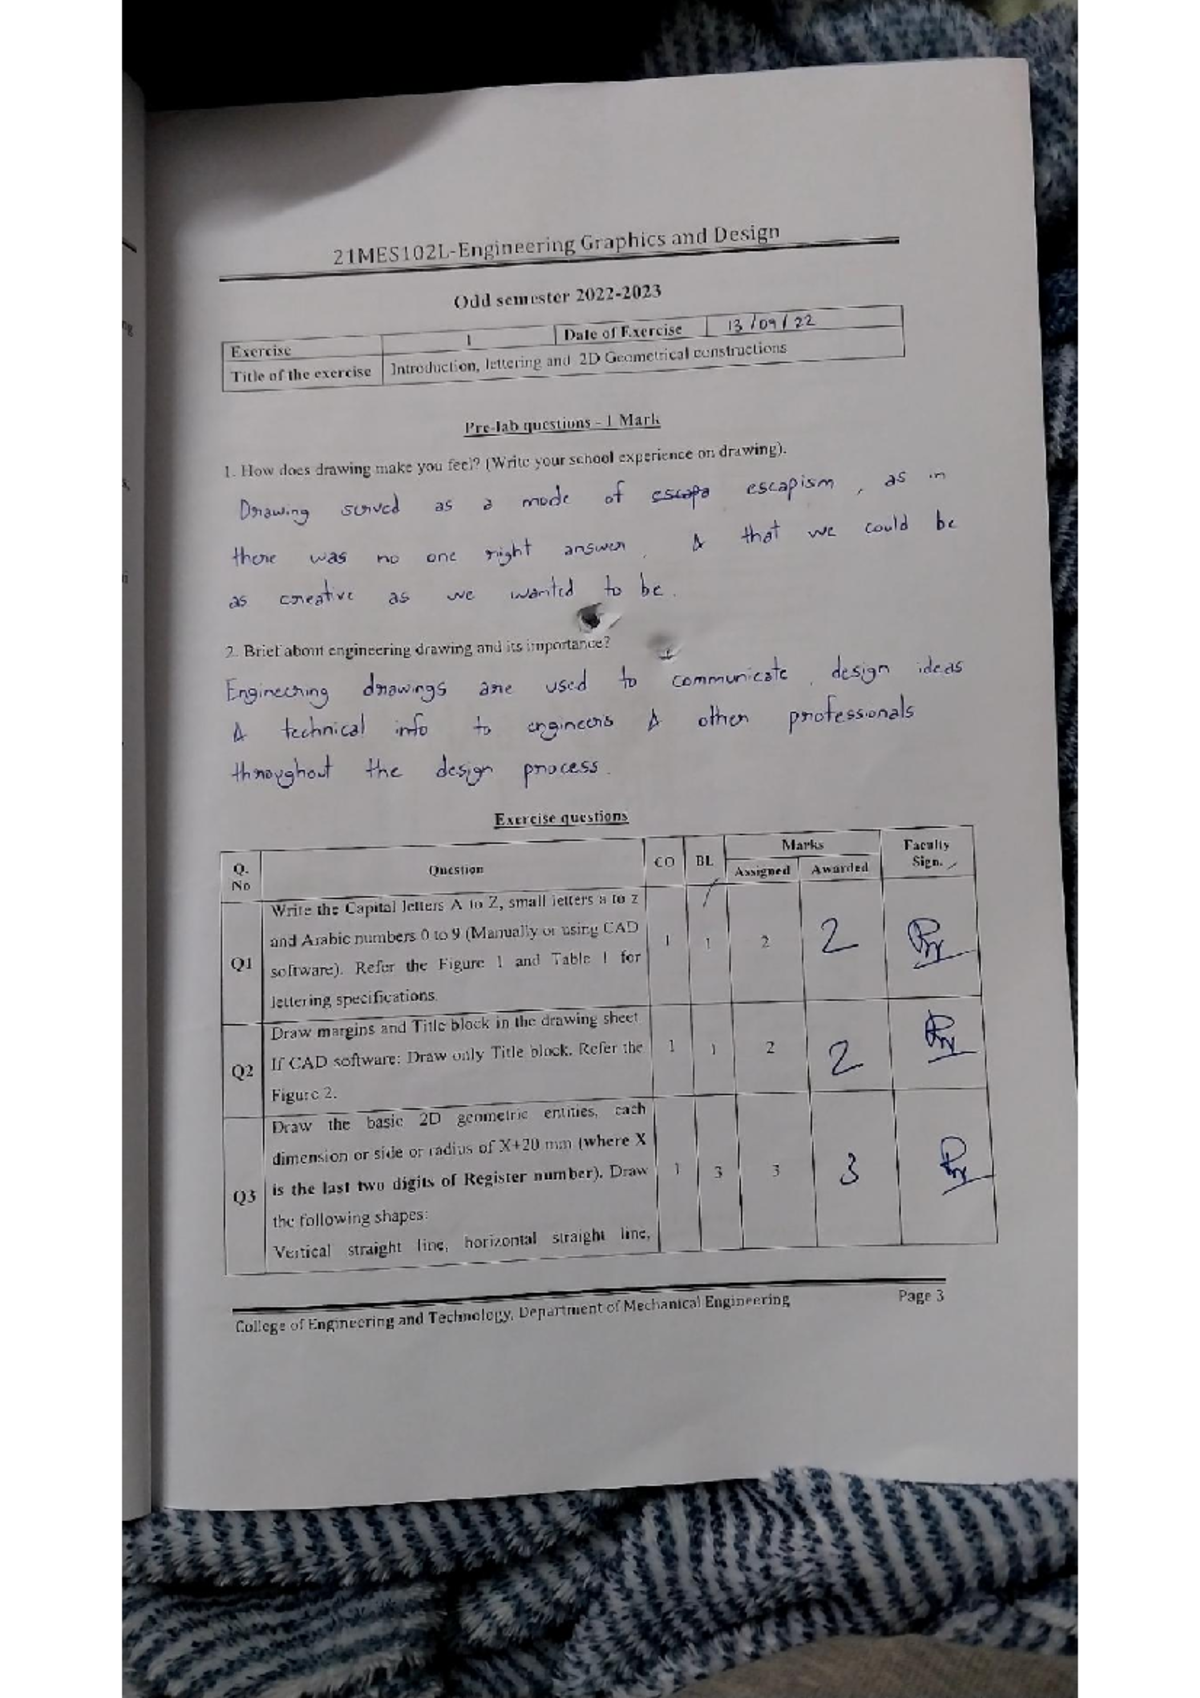 21MES102L-Engineering Graphics and Design
Odd semester 2022-2023
Exercise 1 Date of Exercise 13/09/22
Title of the exercise Introduction, lettering and 2D Geometrical constructions
Pre-lab questions - 1 Mark
1. How does drawing make you feel? (Write your school experience on drawing).
Drawing served as a mode of escape escapism, as in
there was no one right answer, & that we could be
as creative as we wanted to be.
2. Brief about engineering drawing and its importance?
Engineering drawings are used to communicate design ideas
& technical info to engineers & other professionals
throughout the design process.
Exercise questions
Q. No Question CO BL Marks Assigned Awarded Faculty Sign.
Q1 Write the Capital letters A to Z, small letters a to z
and Arabic numbers 0 to 9 (Manually or using CAD
software). Refer the Figure 1 and Table 1 for
lettering specifications. 1 1 2 2
Q2 Draw margins and Title block in the drawing sheet
If CAD software: Draw only Title block. Refer the
Figure 2. 1 1 2 2
Q3 Draw the basic 2D geometric entities, each
dimension or side or radius of X+20 mm (where X
is the last two digits of Register number). Draw
the following shapes:
Vertical straight line, horizontal straight line, 1 3 3 3
College of Engineering and Technology, Department of Mechanical Engineering Page 3